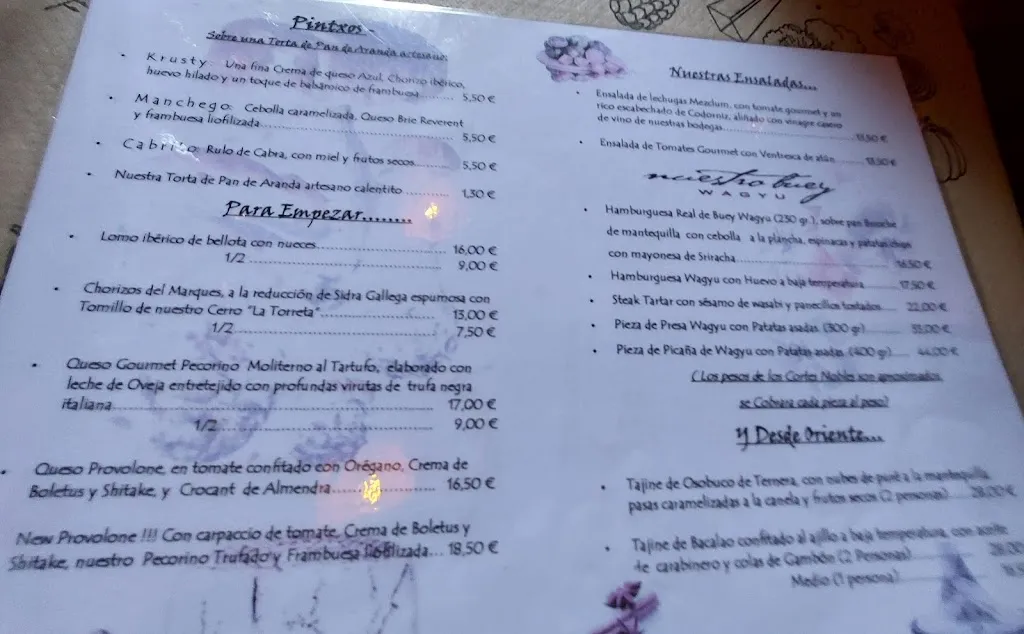 Pintxos -
Sobre una Torta de Pan de Aranda artesano.
• Krusty: Una fina Crema de queso Azul, Chorizo ibérico,
huevo hilado y un toque de balsámico de frambuesa......... 5,50 €
• Manchego: Cebolla caramelizada, Queso Brie Reverent
y frambuesa liofilizada................ 5,50 €
• Cabrito: Rulo de Cabra, con miel y frutos secos....... 5,50 €
• Nuestra Torta de Pan de Aranda artesano calentito .......... 1,30 €
Para Empezar........
• Lomo ibérico de bellota con nueces................ 16,00 €
1/2 ................ 9,00 €
• Chorizos del Marques, a la reducción de Sidra Gallega espumosa con
Tomillo de nuestro Cerro "La Torreta"................ 13,00 €
1/2................ 7,50 €
• Queso Gourmet Pecorino Moliterno al Tartufo, elaborado con
leche de Oveja entretejido con profundas virutas de trufa negra
italiana................ 17,00 €
1/2................ 9,00 €
• Queso Provolone, en tomate confitado con Orégano, Crema de
Boletus y Shitake, y Crocant de Almendra................ 16,50 €
New Provolone !!! Con carpaccio de tomate, Crema de Boletus y
Shitake, nuestro Pecorino Trufado y Frambuesa liofilizada... 18,50 €
Nuestras Ensaladas...
• Ensalada de lechugas Mezclum, con tomate gourmet y un
rico escabechado de Codorniz, aliñado con vinagre
de vino de nuestras bodegas................
• Ensalada de Tomates Gourmet con Ventresca de atún ........ 18,50 €
nuestro buey
WAGYU
• Hamburguesa Real de Buey Wagyu (250 gr.), sobre pan Brioche
de mantequilla con cebolla a la plancha, espinacas y patatas chips
con mayonesa de Sriracha................ 16,50 €
• Hamburguesa Wagyu con Huevo a baja temperatura ........ 17,50 €
• Steak Tartar con sésamo de wasabi y panecillos tostados.... 22,00 €
• Pieza de Presa Wagyu con Patatas asadas. (300 gr)......... 33,00 €
• Pieza de Picaña de Wagyu con Patatas asadas. (400 gr)..... 44,00 €
(Los pesos de los Cortes Nobles son aproximados
se Cobrara cada pieza al peso)
Y Desde Oriente...
• Tajine de Osobuco de Ternera, con nubes de puré a la mantequilla
pasas caramelizadas a la canela y frutos secos (2 personas).... 28,00 €
• Tajine de Bacalao confitado al ajillo a baja temperatura, con aceite
de carabinero y colas de Gambón (2 Personas)........ 28,00
Medio (1 persona)